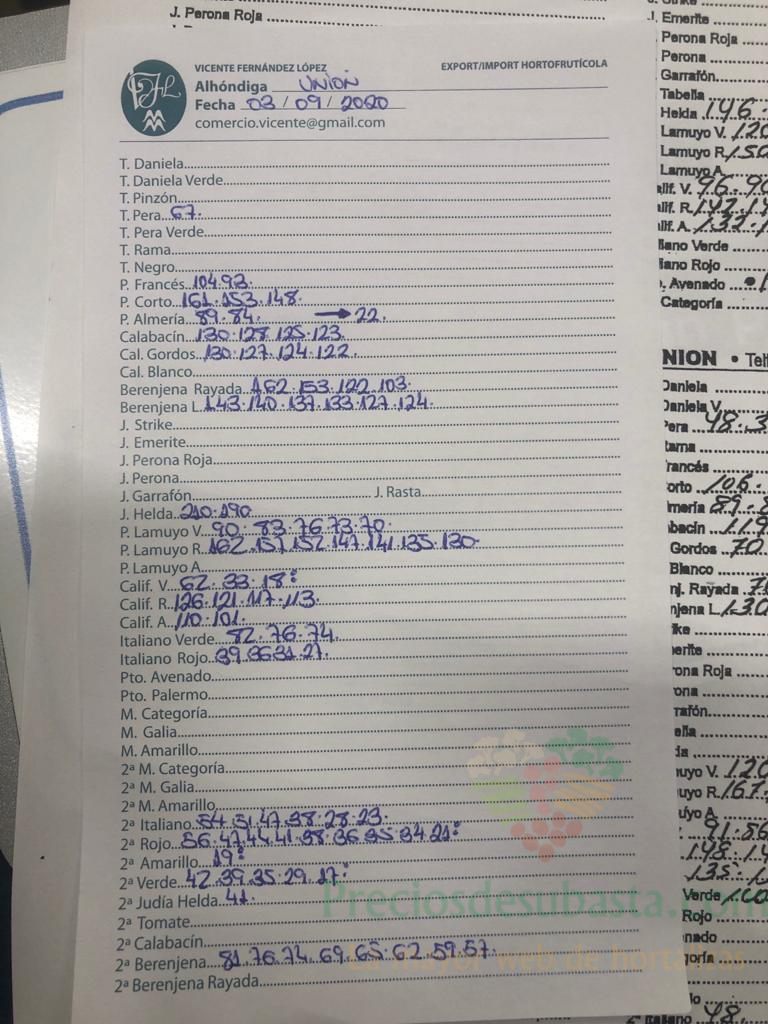 J. Perona Roja
VICENTE FERNÁNDEZ LÓPEZ
EXPORT/IMPORT HORTOFRUTÍCOLA
Alhóndiga UNION
Fecha 03/09/2020
comercio.vicente@gmail.com
T. Daniela
T. Daniela Verde
T. Pinzón
T. Pera 67.
T. Pera Verde
T. Rama
T. Negro
P. Francés 104.93.
P. Corto 161.153.148.
P. Almería 89.84. → 22.
Calabacín 130.128.125.123.
Cal. Gordos 130.127.124.122.
Cal. Blanco
Berenjena Rayada 162.153.122.103.
Berenjena L. 143.140.137.133.127.124.
J. Strike
J. Emerite
J. Perona Roja
J. Perona
J. Garrafón J. Rasta
J. Helda 210.190.
P. Lamuyo V. 90.83.76.73.70.
P. Lamuyo R. 162.157.152.147.141.135.130.
P. Lamuyo A.
Calif. V. 62.33.18:
Calif. R. 126.121.117.113.
Calif. A. 110.101.
Italiano Verde 82.76.74.
Italiano Rojo 39.36.31.27.
Pto. Avenado
Pto. Palermo
M. Categoría
M. Galia
M. Amarillo
2ª M. Categoría
2ª M. Galia
2ª M. Amarillo
2ª Italiano 54.51.47.38.28.23.
2ª Rojo 56.47.44.41.38.36.35.34.21:
2ª Amarillo 19:
2ª Verde 42.39.35.29.17:
2ª Judía Helda 41.
2ª Tomate
2ª Calabacín
2ª Berenjena 81.76.74.69.65.62.59.57.
2ª Berenjena Rayada
Preciosdesubasta.com
La mayor web de hortalizas
J. Emerite
Perona Roja
Perona
Garrafón
Tabella
Helda 146.
Lamuyo V. 120
Lamuyo R. 150
Lamuyo A.
alif. V. 96.90
alif. R. 142.1
alif. A. 132.
liano Verde
liano Rojo
. Avenado
Categoría
NION • Telf
Daniela
Daniela V.
Pera 48.3
Rama
rancés
orto 106.
lmería 89.8
abacín 119
Gordos 70
Blanco
nj. Rayada
njena L. 130
ike
erite
rona Roja
ona
rafón
ella
da
uyo V. 120
uyo R. 167.
uyo A.
91.86
148.14
135.
Verde
Rojo
nado
goría
lo
Italiano 48.